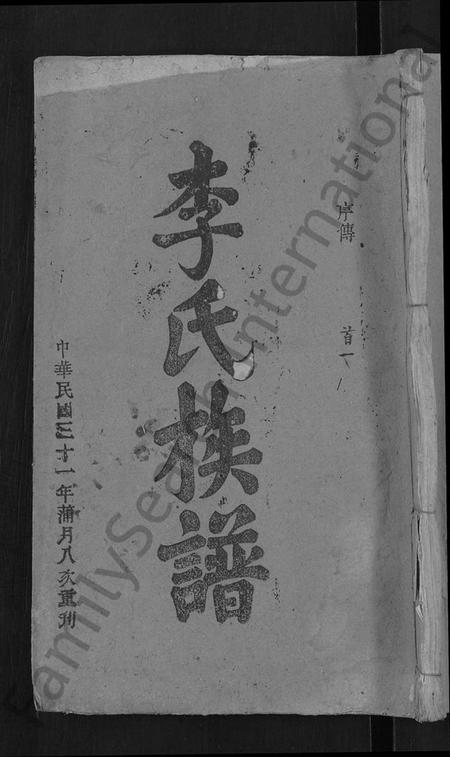 序傳
首一
李氏族譜
中華民國三十一年蒲月八次重刋
FamilySearch International